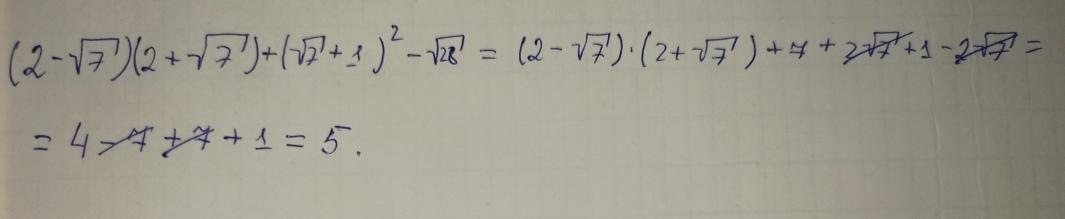 (2-√7)(2+√7)+(√7+1)²-√28 = (2-√7)·(2+√7)+7+2√7+1-2√7=
= 4-7+7+1=5.